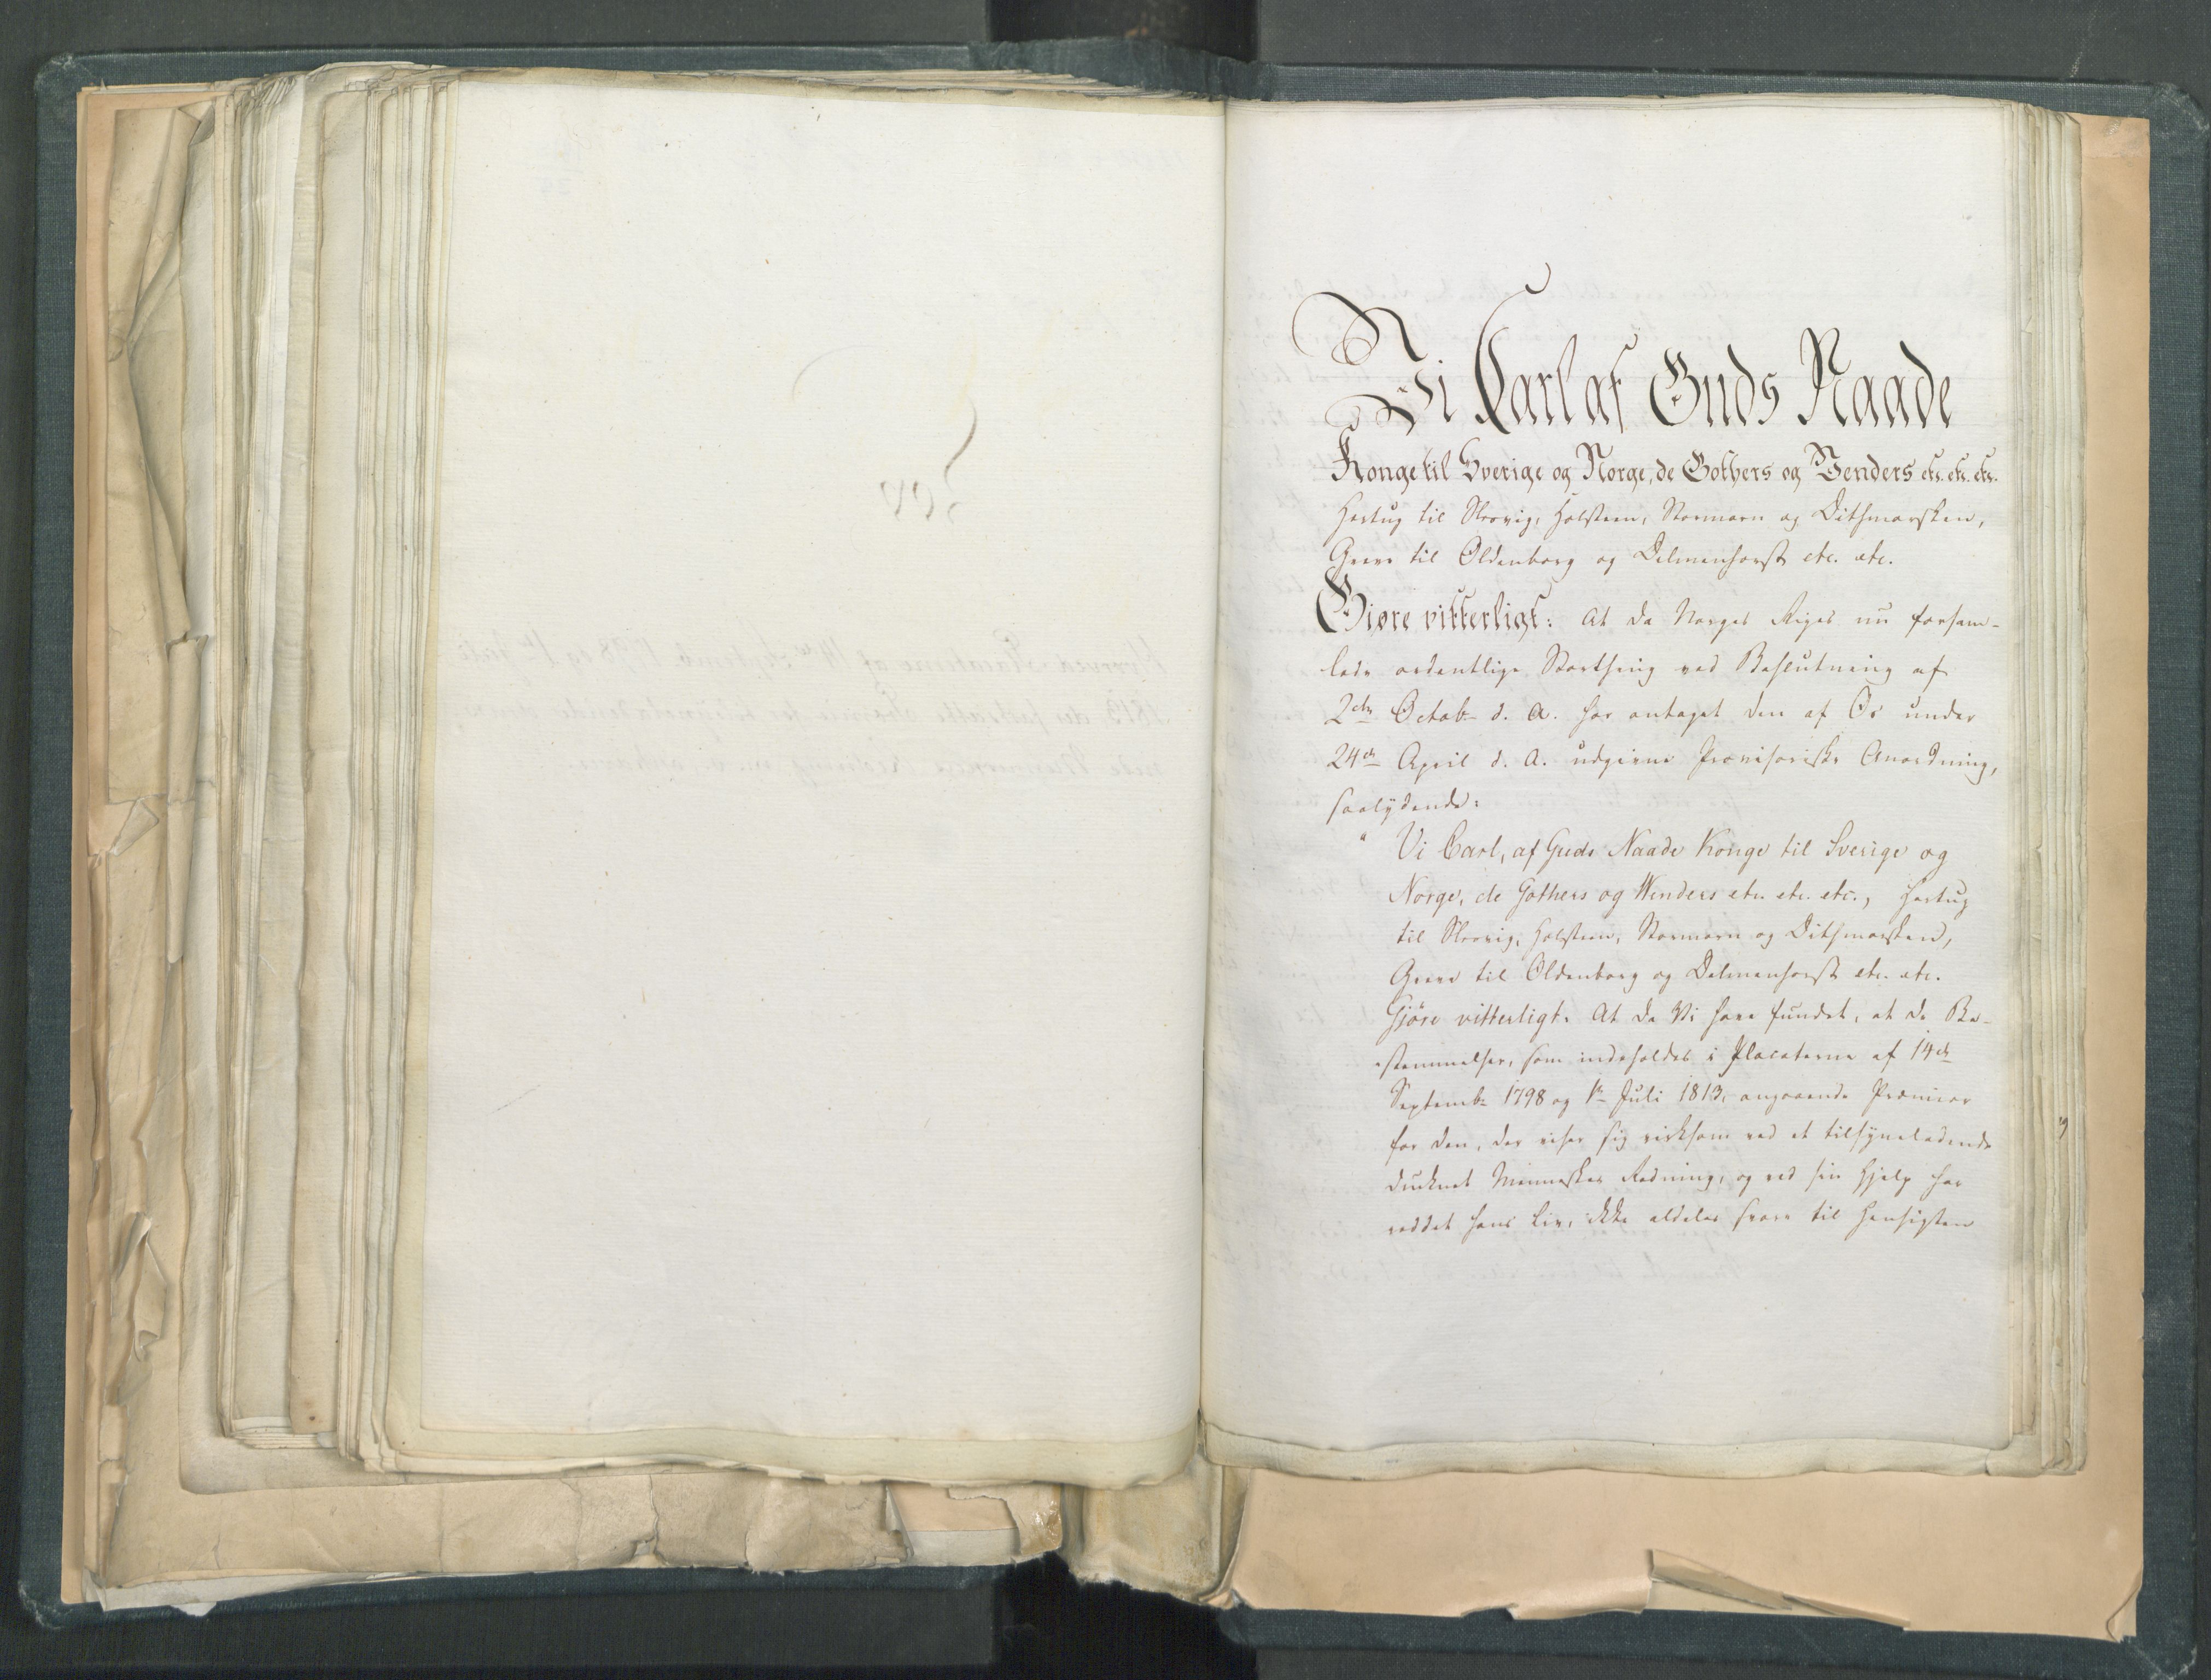 Vi Carl af Guds Naade
Konge til Sverige og Norge, de Gothers og Venders etc. etc. etc.
Hertug til Slesvig, Holsteen, Stormarn og Dithmarsken,
Greve til Oldenborg og Delmenhorst etc. etc.
Giøre vitterligt: At da Norges Riges nu forsam-
lede ordentlige Storthing ved Beslutning af
2den Octob. d. A. har antaget den af Os under
24de April d. A. udgivne Provisoriske Anordning,
saalydende:
" Vi Carl, af Guds Naade Konge til Sverige og
Norge, de Gothers og Wenders etc. etc. etc., Hertug
til Slesvig, Holsteen, Stormarn og Dithmarsken,
Greve til Oldenborg og Delmenhorst etc. etc.
Gjöre vitterligt: At da Vi have fundet, at de Be-
stemmelser, som indeholdes i Placaterne af 14de
Septemb. 1798 og 1ste Juli 1813, angaaende Præmier
for den, der viser sig virksom ved et tilsyneladende
druknet Menneskes Redning, og ved sin Hjelp har
reddet hans Liv, ikke aldeles svare til Hensigten